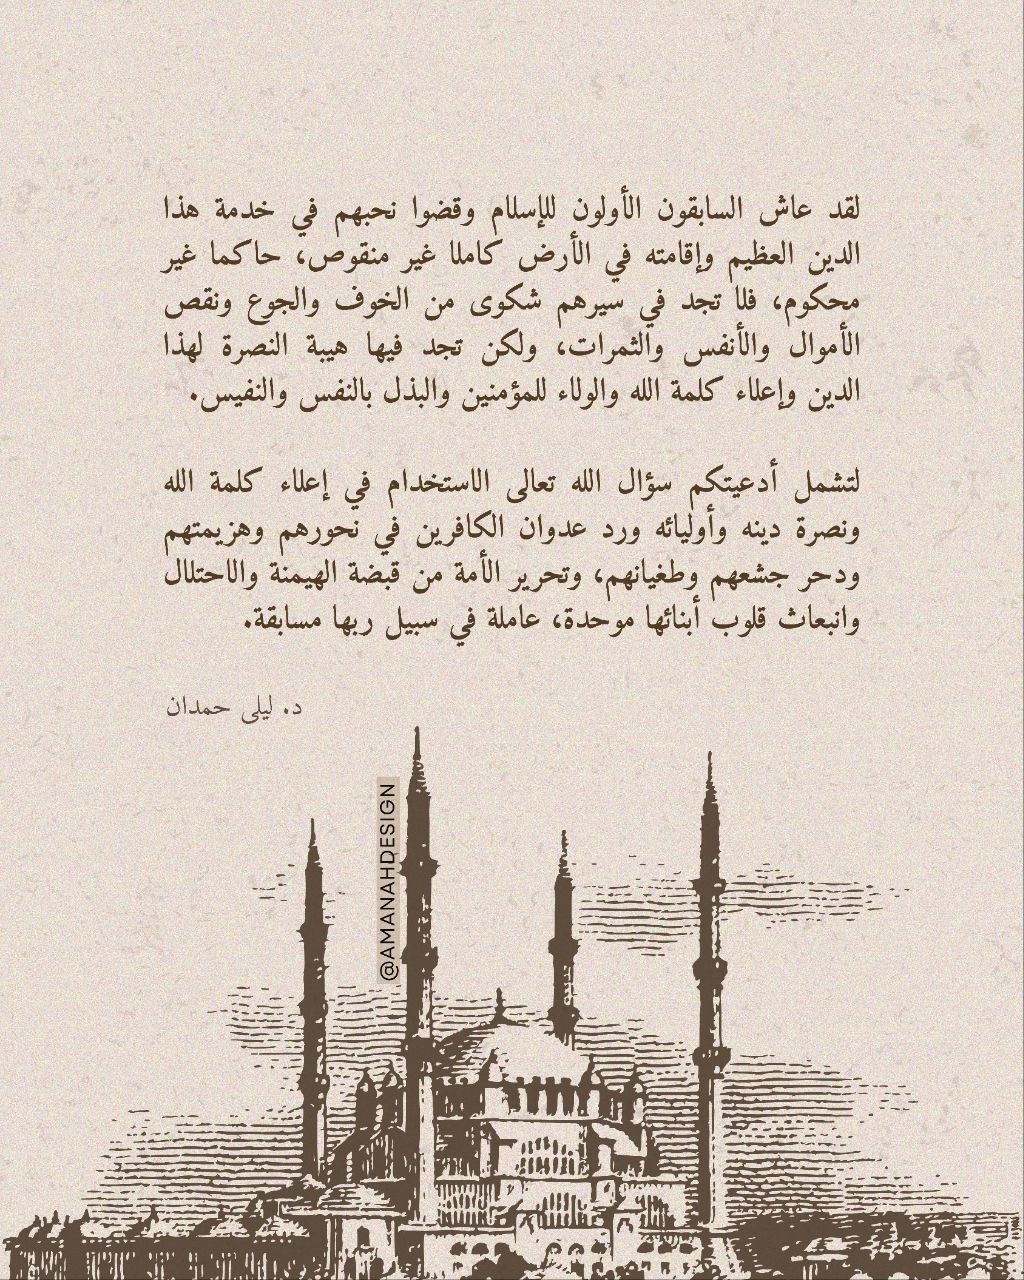 لقد عاش السابقون الأولون للإسلام وقضوا نحبهم في خدمة هذا
الدين العظيم وإقامته في الأرض كاملا غير منقوص، حاكما غير
محكوم، فلا تجد في سيرهم شكوى من الخوف والجوع ونقص
الأموال والأنفس والثمرات، ولكن تجد فيها هيبة النصرة لهذا
الدين وإعلاء كلمة الله والولاء للمؤمنين والبذل بالنفس والنفيس.
لتشمل أدعيتكم سؤال الله تعالى الاستخدام في إعلاء كلمة الله
ونصرة دينه وأوليائه ورد عدوان الكافرين في نحورهم وهزيمتهم
ودحر جشعهم وطغيانهم، وتحرير الأمة من قبضة الهيمنة والاحتلال
وانبعاث قلوب أبنائها موحدة، عاملة في سبيل ربها مسابقة.
د. ليلى حمدان
@AMANAHDESIGN